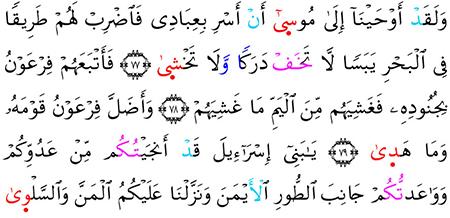 وَلَقَدْ أَوْحَيْنَآ إِلَىٰ مُوسِىٰٓ أَنْ أَسْرِ بِعِبَادِى فَٱضْرِبْ لَهُمْ طَرِيقًا
فِى ٱلْبَحْرِ يَبَسًا لَّا تَخَفْ دَرَكًا وَلَا تَخْشِىٰ ﴿٧٧﴾ فَأَتْبَعَهُمْ فِرْعَوْنُ
بِجُنُودِهِۦ فَغَشِيَهُم مِّنَ ٱلْيَمِّ مَا غَشِيَهُمْ ﴿٧٨﴾ وَأَضَلَّ فِرْعَوْنُ قَوْمَهُۥ
وَمَا هَدِىٰ ﴿٧٩﴾ يَٰبَنِىٓ إِسْرَٰٓءِيلَ قَدْ أَنجَيْتُكُم مِّنْ عَدُوِّكُمْ
وَوَٰعَدتُّكُمْ جَانِبَ ٱلطُّورِ ٱلْأَيْمَنَ وَنَزَّلْنَا عَلَيْكُمُ ٱلْمَنَّ وَٱلسَّلْوِىٰ